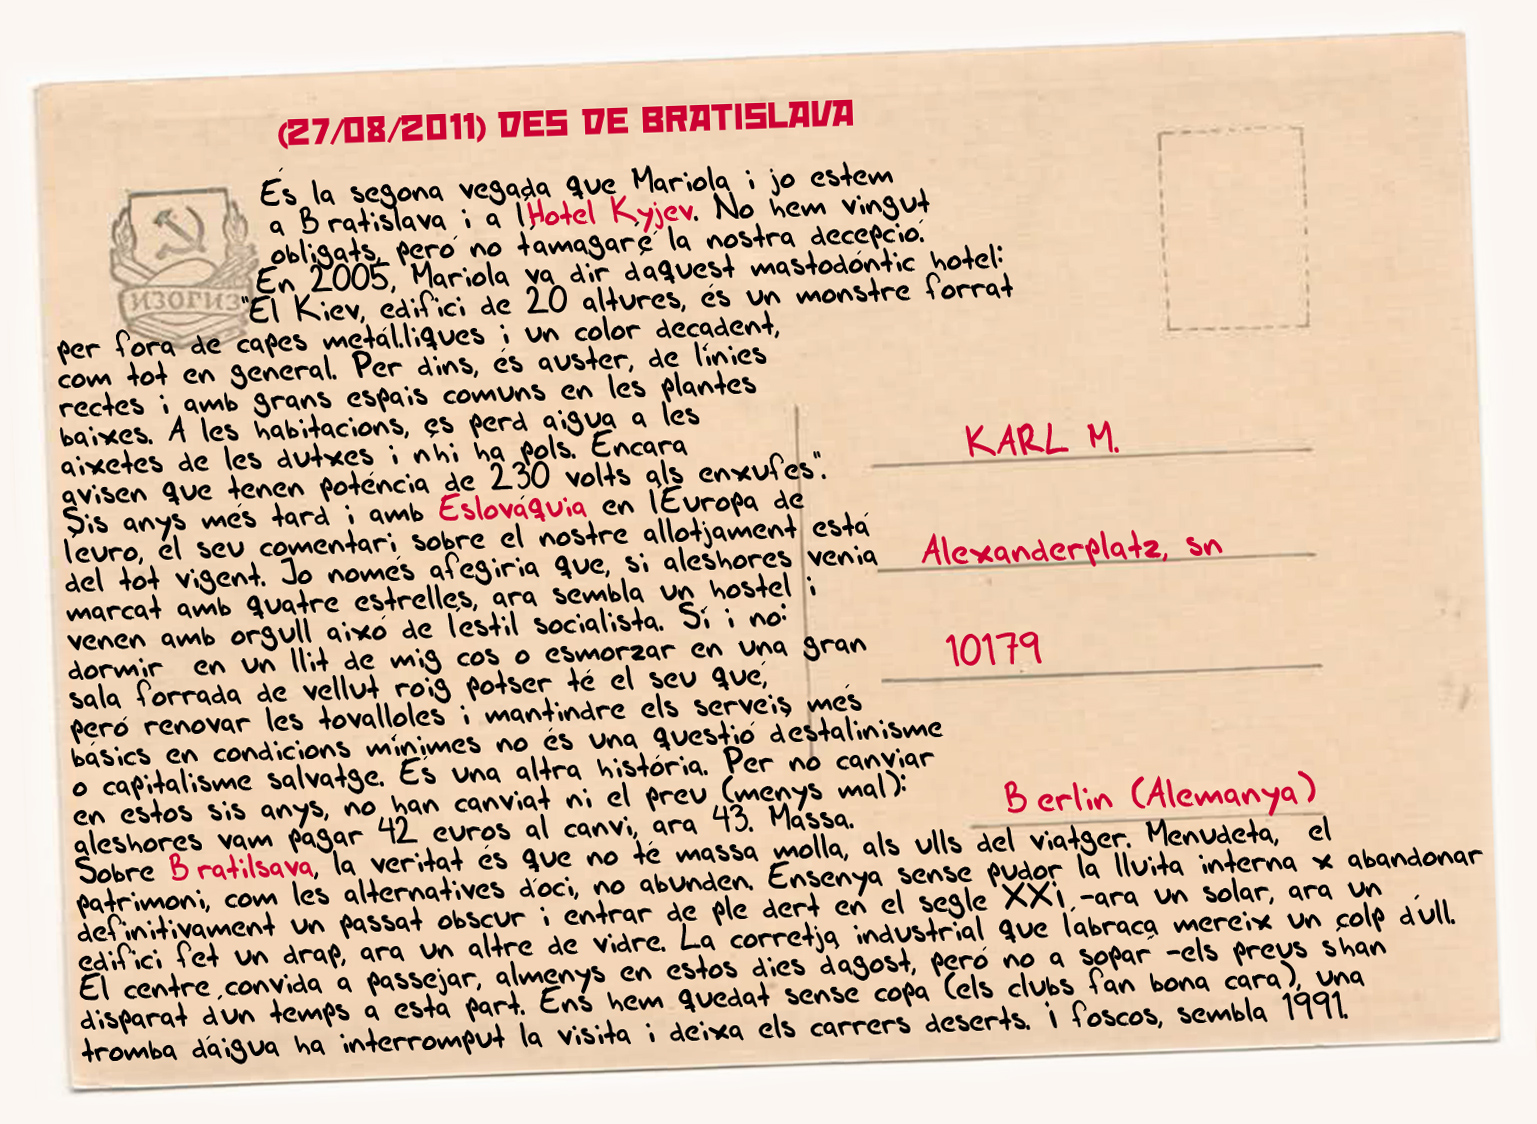 (27/08/2011) DES DE BRATISLAVA
És la segona vegada que Mariola i jo estem
a Bratislava i a l'Hotel Kyjev. No hem vingut
obligats, però no t'amagaré la nostra decepció.
En 2005, Mariola va dir d'aquest mastodòntic hotel:
ИЗОГИЗ
"El Kiev, edifici de 20 altures, és un monstre forrat
per fora de capes metàl.liques i un color decadent,
com tot en general. Per dins, és auster, de línies
rectes i amb grans espais comuns en les plantes
baixes. A les habitacions, es perd aigua a les
aixetes de les dutxes i n'hi ha pols. Encara
avisen que tenen potència de 230 volts als enxufes".
Sis anys més tard i amb Eslovàquia en l'Europa de
l'euro, el seu comentari sobre el nostre allotjament està
del tot vigent. Jo només afegiria que, si aleshores venia
marcat amb quatre estrelles, ara sembla un hostel i
venen amb orgull això de l'estil socialista. Sí i no:
dormir en un llit de mig cos o esmorzar en una gran
sala forrada de vellut roig potser té el seu què,
però renovar les tovalloles i mantindre els serveis més
bàsics en condicions mínimes no és una questió d'estalinisme
o capitalisme salvatge. És una altra història. Per no canviar
en estos sis anys, no han canviat ni el preu (menys mal):
aleshores vam pagar 42 euros al canvi, ara 43. Massa.
Sobre Bratilsava, la veritat és que no té massa molla, als ulls del viatger. Menudeta, el
patrimoni, com les alternatives d'oci, no abunden. Ensenya sense pudor la lluita interna x abandonar
definitivament un passat obscur i entrar de ple dert en el segle XXi -ara un solar, ara un
edifici fet un drap, ara un altre de vidre. La corretja industrial que l'abraça mereix un colp d'ull.
El centre convida a passejar, almenys en estos dies d'agost, però no a sopar -els preus s'han
disparat d'un temps a esta part. Ens hem quedat sense copa (els clubs fan bona cara), una
tromba d'aigua ha interromput la visita i deixa els carrers deserts. i foscos, sembla 1991.
KARL M.
Alexanderplatz, sn
10179
Berlin (Alemanya)